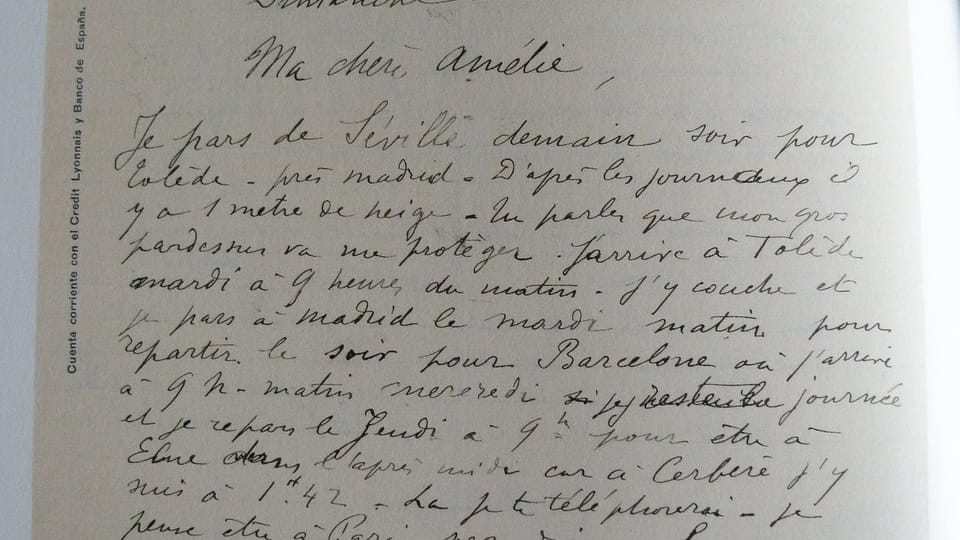 Dimanche
Ma chère Amélie,
Je pars de Séville demain soir pour
Tolède - près madrid - D'après les journeaux il
y a 1 mètre de neige - Tu parles que mon gros
pardessus va me protéger. J'arrive à Tolède
mardi à 9 heures du matin - J'y couche et
je pars à madrid le mardi matin pour
repartir le soir pour Barcelone où j'arrive
à 9 h - matin mercredi j'y journée
et je repars le Jeudi à 9h pour être à
Elne dans l'après midi car à Cerbère j'y
suis à 1h 42 - La je te téléphonerai - je
pense être à Paris
Cuenta corriente con el Credit Lyonnais y Banco de España.